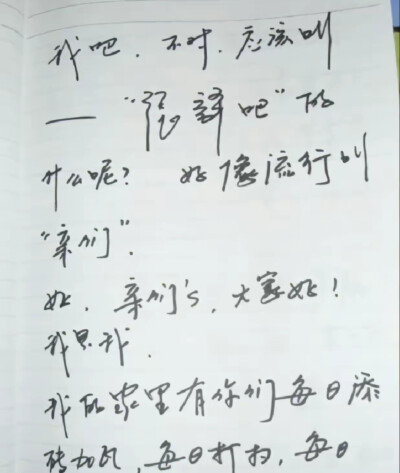 我吧，不对，应该叫
——"张译吧"的
什么呢？ 好像流行叫
"亲们"。
好，亲们's，大家好！
我是我。
我的家里有你们每日添
砖加瓦，每日打扫，每日